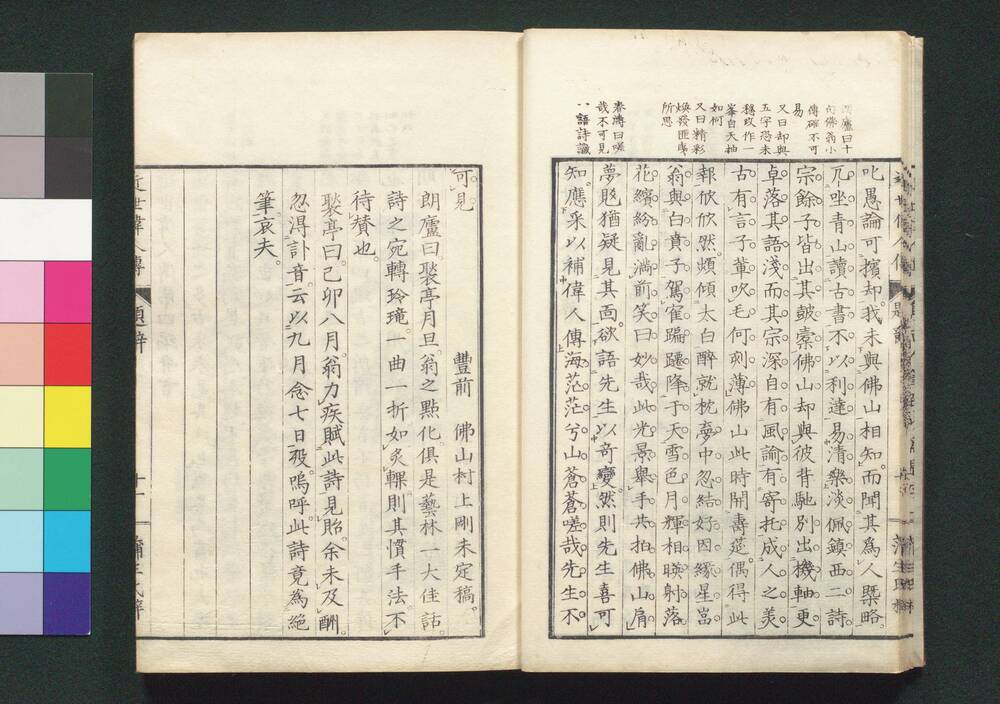 朗廬曰十
句佛翁小
傳確不可
易
又曰却與
五字恐未
穏改作一
峯自天抽
如何
又曰精彩
煥發匪夷
所思
春濤曰嗟
哉不可見
八語詩讖
叱愚論可擯却我未與佛山相知而聞其爲人槩略
兀坐青山讀古書不以利達易清樂淡佩鎮西二詩
宗餘子皆出其鼓橐佛山却與彼背馳別出機軸更
卓落其語淺而其宗深自有風諭有寄托成人之美
古有言子輩吹毛何刻薄佛山此時開壽莚偶得此
報欣欣然頻傾太白醉就枕夢中忽結好因縁星冠
翁與白賁子駕寉蹁躚降于天雪色月輝相暎射落
花繽紛亂滿前笑曰妙哉此光景舉手共拍佛山肩
夢覺猶疑見其面欲語先生以奇變然則先生喜可
知應采以補偉人傳海茫茫兮山蒼蒼嗟哉先生不
可見
豐前 佛山村上剛未定稿
朗廬曰聚亭月旦翁之點化俱是藝林一大佳話
詩之宛轉玲瓏一曲一折如炙輠則其慣手法不
待賛也
聚亭曰己卯八月翁力疾賦此詩見貽余未及酬
忽淂訃音云以九月念七日歿嗚呼此詩竟爲絶
筆哀夫
近世偉人傳 題辭 十一 蒲生氏梓